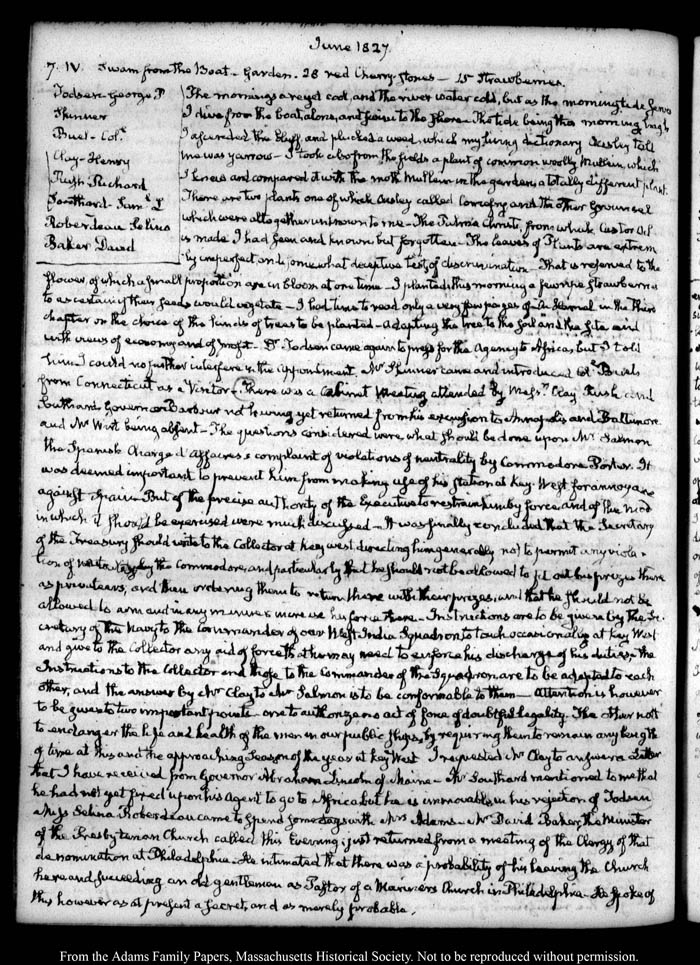 June 1827.
7. IV. Swam from the Boat – Garden. 28 red Cherry Stones – 15 Strawberries.
Todsen - George P
Skinner
Buel – Col.
Clay - Henry
Rush Richard
Southard - Sam.l L
Roberdeau Selina
Baker David
The morning air yet cool, and the river water cold, but as the morning tide serves
I dive from the boat, alone, and swim to the shore – The tide being this morning high
I ascended the bluff, and plucked a weed, which my living dictionary Ousley told
me was yarrow – I took also from the fields a plant of common woolly Mullein, which
I knew and compared it with the moth Mullein in the garden; a totally different plant.
There are two plants one of which Ousley called Comfrey and the other Groundsel
which were altogether unknown to me – The Palma Christi, from which Castor Oil
is made I had seen and known but forgotten – The leaves of Plants are extrem-
-ly imperfect and somewhat deceptive test of discrimination – That is reserved to the
flower, of which a small proportion are in bloom at one time – I planted this morning a few ripe strawberries
to ascertain if their seeds would vegetate – I had time to read only a very few pages of in the third
chapter on the choice of the kinds of trees to be planted – Adapting the tree to the soil and the site and
with views of economy and of profit – Dr. Todsen came again to press for the Agency to Africa, but I told
him I could no further interfere in the appointment. Mr Skinner came and introduced Col. Buel
from Connecticut as a Visitor – There was a Cabinet Meeting attended by Mess.rs Clay, Rush and
Southard Governor Barbour not having yet returned from his excursion to Annapolis and Baltimore.
and Mr Wirt being absent – The questions considered were, what should be done upon Mr Salmon
the Spanish Charge d'Affaires's complaint of violations of neutrality by Commodore Porter. It
was deemed important to prevent him from making use of his station at Key-West for annoyance
against Spain – But of the precise authority of the Executive to restrain him by force and of the mode
in which it should be exercised were much discussed – It was finally concluded that the Secretary
of the Treasury should write to the Collector at Key west, directing him generally not to permit any viola-
tion of neutrality by the Commodore, and particularly that he should not be allowed to fit out his prizes there
as privateers, and then ordering them to return there with their prizes, and that he should not be
allowed to arm and in any manner increase his force there. – Instructions are to be given by the Se-
cretary of the Navy to the Commander of our West-India Squadron to touch occasionally at Key West
and give to the Collector any aid of force that he may need to enforce his discharge of his duties – The
Instructions to the Collector and those to the Commander of the Squadron, are to be adapted to each
other, and the answer by Mr Clay to Mr Salmon is to be conformable to them – Attention is however
to be given to two important points – one to authorize no act of force of doubtful legality. The other not
to endanger the life and health of the men in our public ships, by requiring them to remain any length
of time at this and the approaching Season of the year at Key West I requested Mr Clay to answer a Letter
that I have received from Governor Abraham Lincoln of Maine – Mr Southard mentioned to me that
he had not yet fixed upon his Agent to go to Africa but he is immovable in his rejection of Todsen
Miss Selina Roberdeau came to spend some days with Mrs Adams – Mr David Baker, the Minister
of the Presbyterian Church called this Evening; just returned from a meeting of the Clergy of that
denomination at Philadelphia – He intimated that there was a probability of his leaving the Church
here and succeeding an old gentleman as Pastor of a Mariners Church in Philadelphia – He spoke of
this however as at present a secret, and as merely probable.
From the Adams Family Papers, Massachusetts Historical Society. Not to be reproduced without permission.